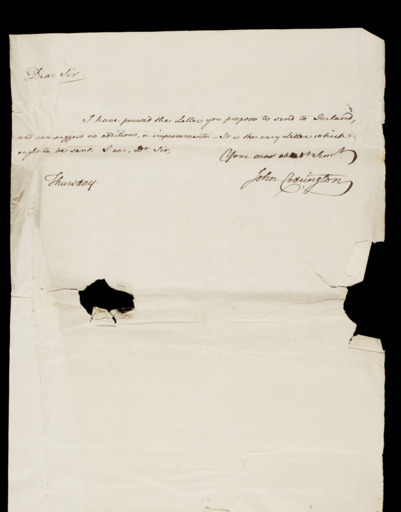 Dear Sir.
I have perused the Letter you propose to send to Ireland,
and can suggest no additions, or improvements. It is the very Letter which
ought to be sent. I am, Dr. Sir,
Your most obedt. Servt.
Thursday.
John Codrington